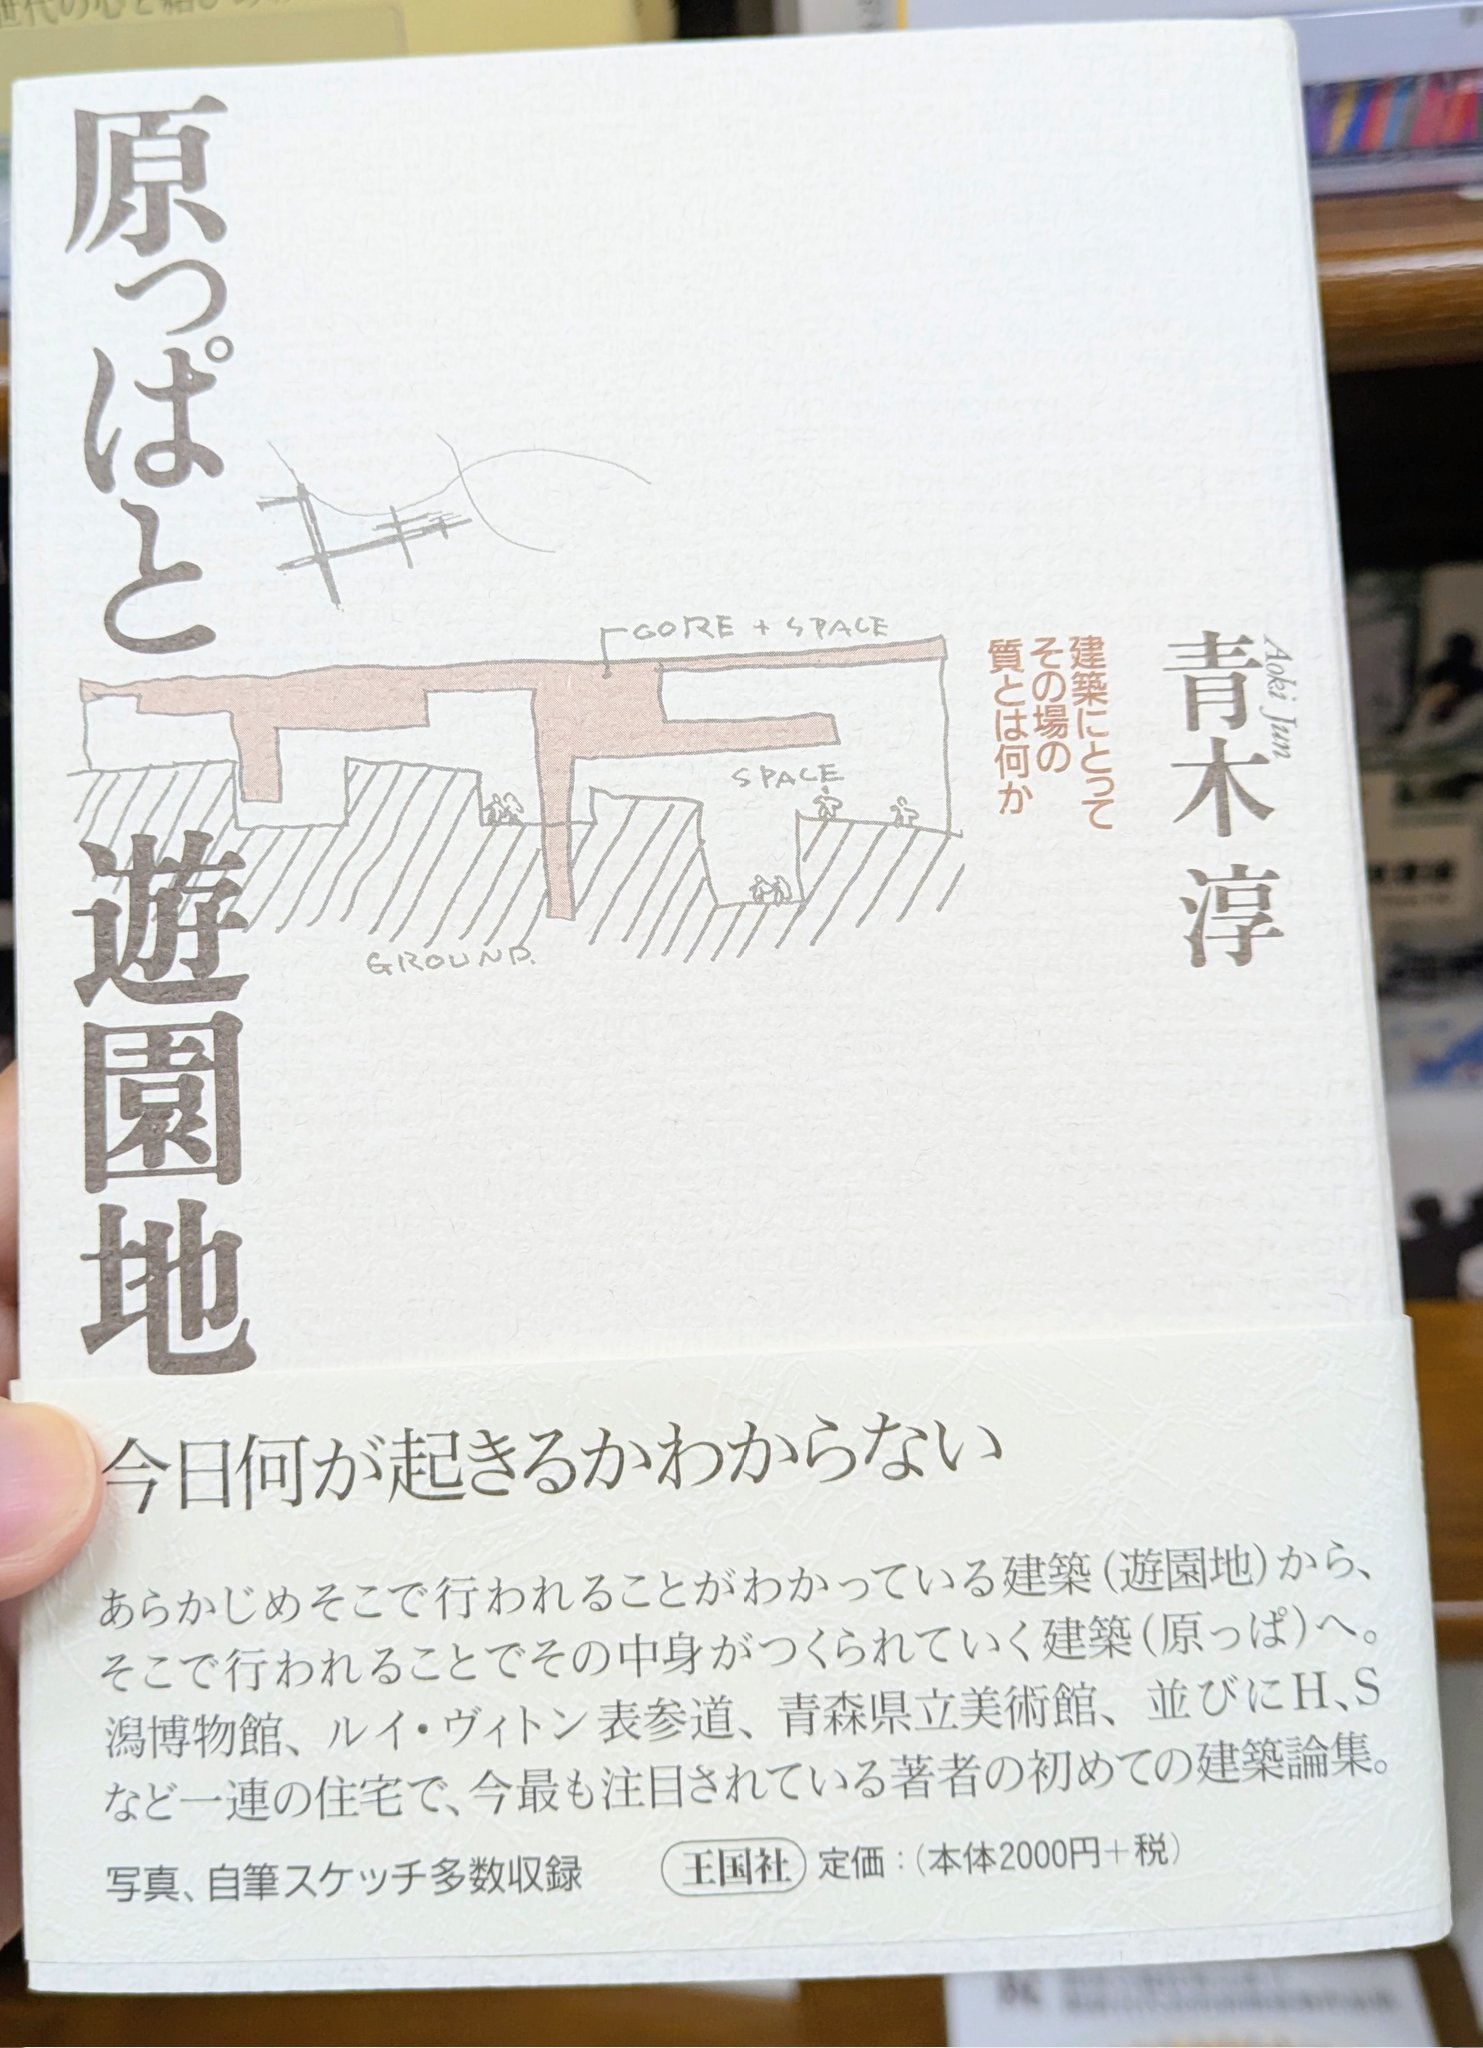 原っぱと遊園地
CORE + SPACE
SPACE
GROUND.
建築にとって
その場の
質とは何か
Aoki Jun
青木 淳
今日何が起きるかわからない
あらかじめそこで行われることがわかっている建築(遊園地)から、
そこで行われることでその中身がつくられていく建築(原っぱ)へ。
潟博物館、ルイ・ヴィトン表参道、青森県立美術館、並びにH、S
など一連の住宅で、今最も注目されている著者の初めての建築論集。
写真、自筆スケッチ多数収録
王国社 定価:(本体2000円+税)